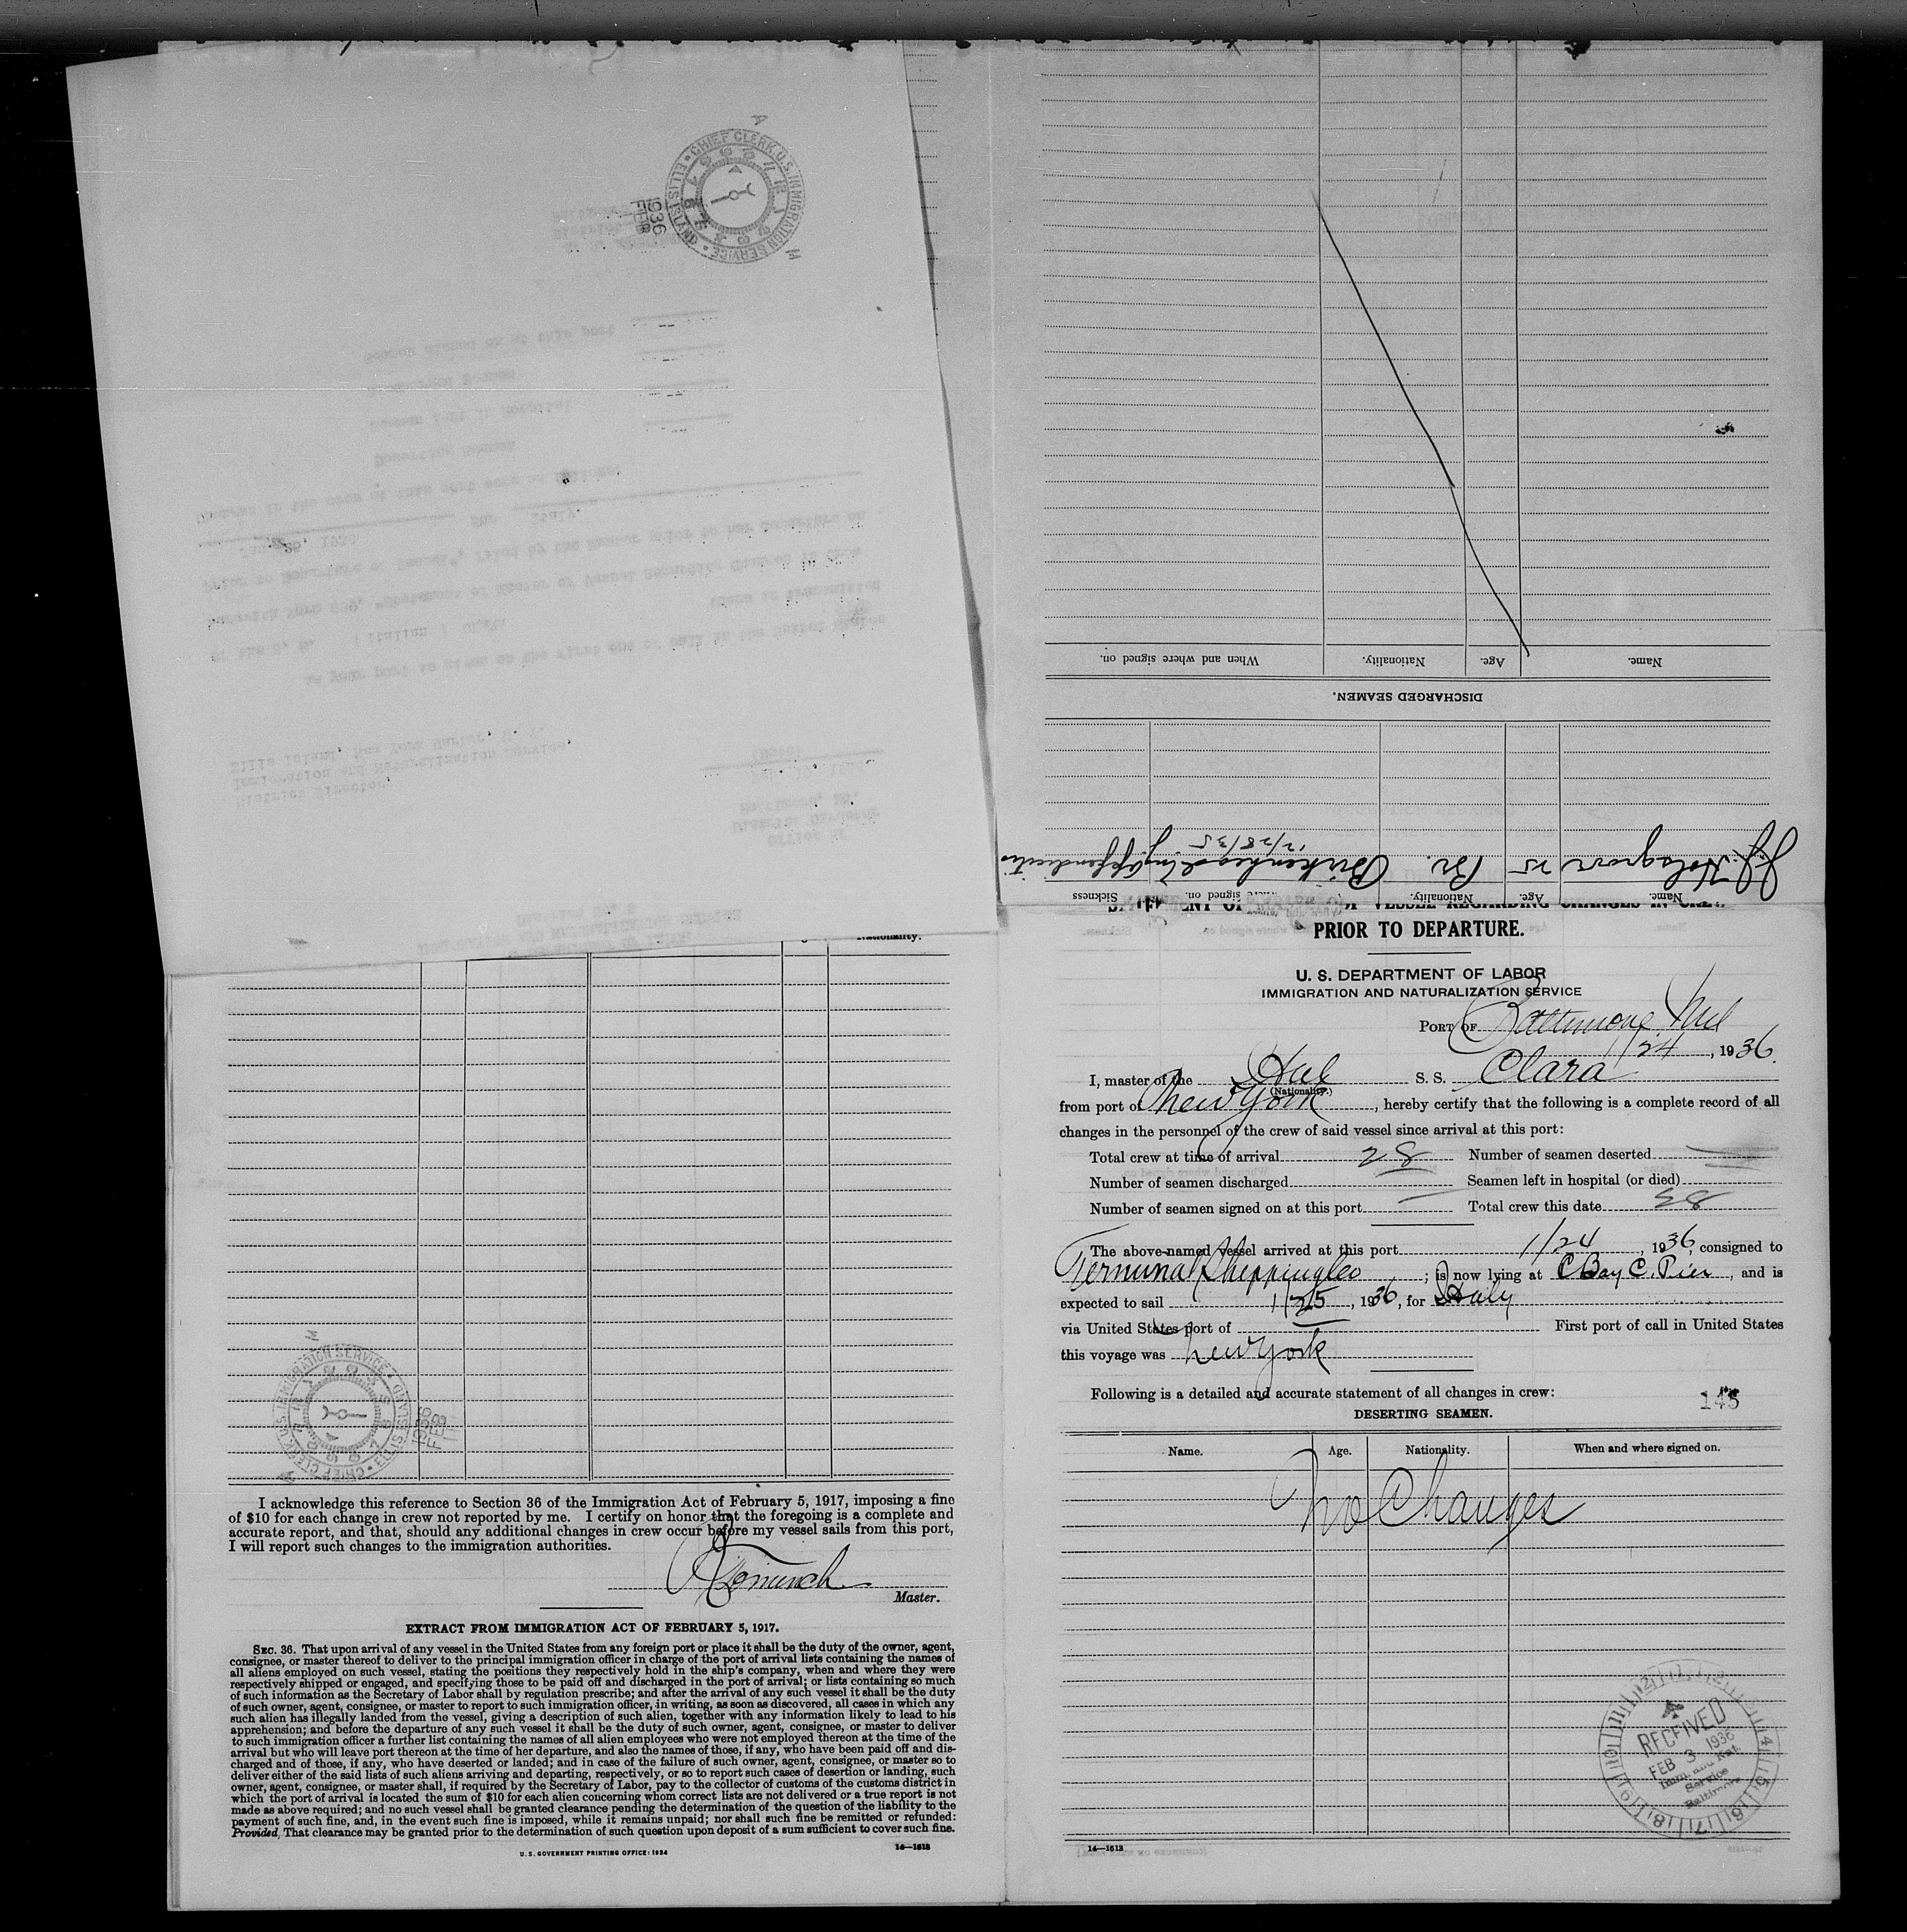 CHIEF CLERK, U.S. IMMIGRATION SERVICE
ELLIS ISLAND
1936
FEB
Name. Age. Nationality. When and where signed on.
DISCHARGED SEAMEN.
Name. Age. Nationality. signed on. Sickness
25 Br. Birkenhead Eng Appendicitis
12/28/35
PRIOR TO DEPARTURE.
U. S. DEPARTMENT OF LABOR
IMMIGRATION AND NATURALIZATION SERVICE
PORT OF Baltimore Md
1/24, 1936.
I, master of the Ital S. S. Clara
(Nationality.)
from port of New York, hereby certify that the following is a complete record of all
changes in the personnel of the crew of said vessel since arrival at this port:
Total crew at time of arrival 28 Number of seamen deserted
Number of seamen discharged Seamen left in hospital (or died)
Number of seamen signed on at this port Total crew this date 28
The above-named vessel arrived at this port 1/24, 1936, consigned to
Terminal Shipping Co; is now lying at C Bay C. Pier, and is
expected to sail 1/25, 1936, for Italy
via United States port of First port of call in United States
this voyage was New York
Following is a detailed and accurate statement of all changes in crew:
145
DESERTING SEAMEN.
Name. Age. Nationality. When and where signed on.
No Changes
RECEIVED
FEB 3 1936
Imm. and Nat.
Service
Baltimore
14—1613
Nationality.
CHIEF CLERK, U.S. IMMIGRATION SERVICE
ELLIS ISLAND
1936
FEB
I acknowledge this reference to Section 36 of the Immigration Act of February 5, 1917, imposing a fine
of $10 for each change in crew not reported by me. I certify on honor that the foregoing is a complete and
accurate report, and that, should any additional changes in crew occur before my vessel sails from this port,
I will report such changes to the immigration authorities.
Master.
EXTRACT FROM IMMIGRATION ACT OF FEBRUARY 5, 1917.
SEC. 36. That upon arrival of any vessel in the United States from any foreign port or place it shall be the duty of the owner, agent,
consignee, or master thereof to deliver to the principal immigration officer in charge of the port of arrival lists containing the names of
all aliens employed on such vessel, stating the positions they respectively hold in the ship's company, when and where they were
respectively shipped or engaged, and specifying those to be paid off and discharged in the port of arrival; or lists containing so much
of such information as the Secretary of Labor shall by regulation prescribe; and after the arrival of any such vessel it shall be the duty
of such owner, agent, consignee, or master to report to such immigration officer, in writing, as soon as discovered, all cases in which any
such alien has illegally landed from the vessel, giving a description of such alien, together with any information likely to lead to his
apprehension; and before the departure of any such vessel it shall be the duty of such owner, agent, consignee, or master to deliver
to such immigration officer a further list containing the names of all alien employees who were not employed thereon at the time of the
arrival but who will leave port thereon at the time of her departure, and also the names of those, if any, who have been paid off and dis-
charged and of those, if any, who have deserted or landed; and in case of the failure of such owner, agent, consignee, or master so to
deliver either of the said lists of such aliens arriving and departing, respectively, or so to report such cases of desertion or landing, such
owner, agent, consignee, or master shall, if required by the Secretary of Labor, pay to the collector of customs of the customs district in
which the port of arrival is located the sum of $10 for each alien concerning whom correct lists are not delivered or a true report is not
made as above required; and no such vessel shall be granted clearance pending the determination of the question of the liability to the
payment of such fine, and, in the event such fine is imposed, while it remains unpaid; nor shall such fine be remitted or refunded:
Provided, That clearance may be granted prior to the determination of such question upon deposit of a sum sufficient to cover such fine.
U. S. GOVERNMENT PRINTING OFFICE: 1934
14—1613